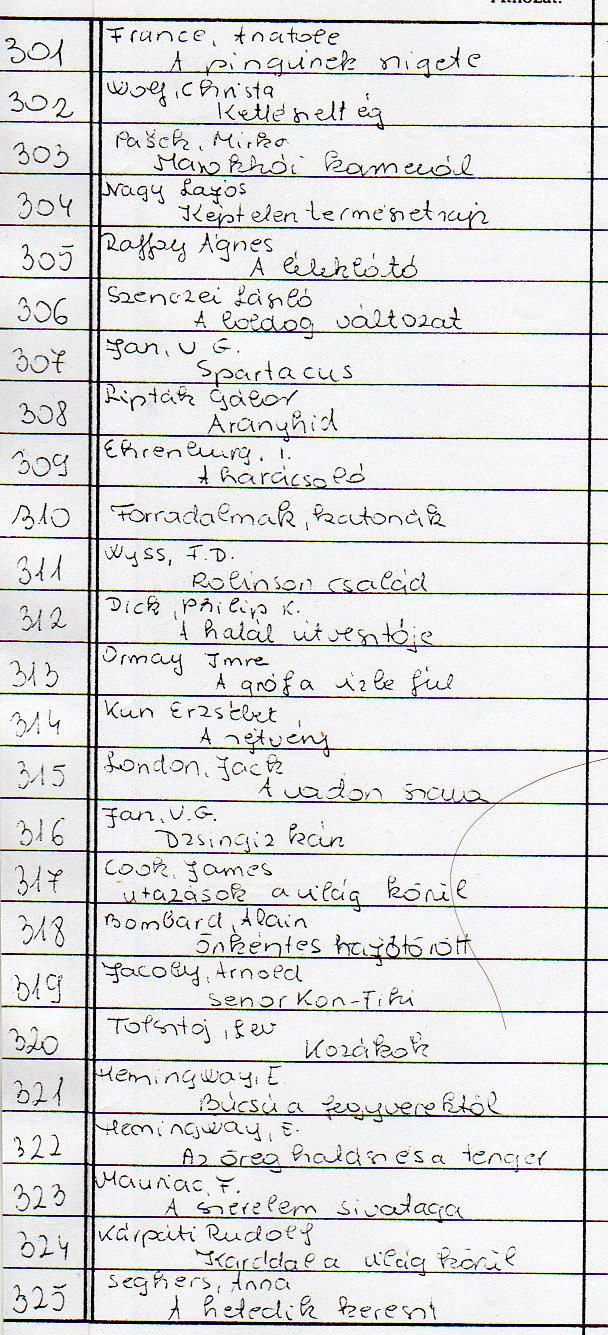 301 France, Anatole
A pingvinek szigete
302 Wolf, Christa
Kettészelt ég
303 Pašek, Mirko
Marokkói kamerál
304 Nagy Lajos
Képtelen természetrajz
305 Raffy Ágnes
A léleklátó
306 Szenczei László
A boldog változat
307 Jan, V G.
Spartacus
308 Lipták Gábor
Aranyhid
309 Ehrenburg, I.
A harácsoló
310 Forradalmak, katonák
311 Wyss, J.D.
Robinson család
312 Dick, Philip K.
A halál útvesztője
313 Ormay Imre
A gróf a izbe fül
314 Kun Erzsébet
A rejtvény
315 London, Jack
A vadon szava
316 Jan, V.G.
Dzsingiz kán
317 Cook, James
utazások a világ körül
318 Bombard, Alain
Önkéntes hajótörött
319 Jacoby, Arnold
senor Kon-Tiki
320 Tolsztoj, Lev
Kozákok
321 Hemingway, E
Búcsú a fegyverektől
322 Hemingway, E.
Az öreg halász és a tenger
323 Mauriac, F.
A szerelem sivataga
324 Kárpáti Rudolf
Karddal a világ körül
325 Seghers, Anna
A hetedik kereszt